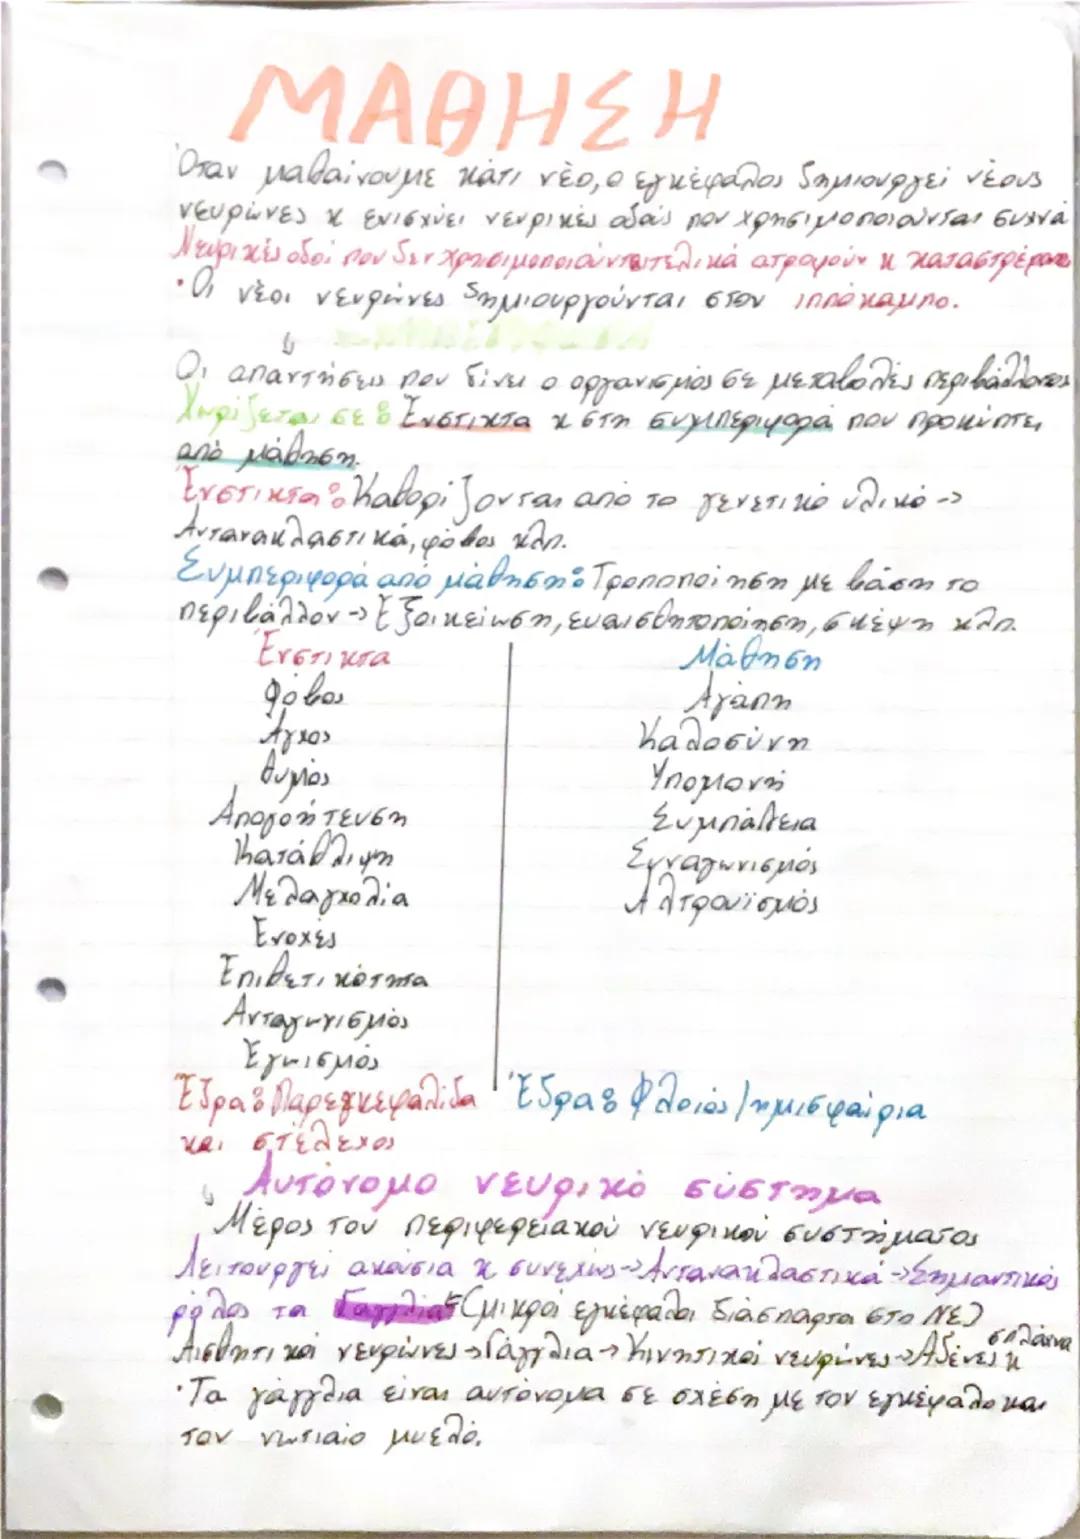 ΜΑΘΗΣΗ
Όταν μαθαίνουμε κάτι νέο, ο εγκέφαλος δημιουργεί νέους
νευρώνες κ ενισχύει νευρικές οδούς που χρησιμοποιούνται συχνά
Νευρικές οδοί που δεν χρησιμοποιούνται τελικά ατροφούν κ καταστρέφονται
• Οι νέοι νευρώνες δημιουργούνται στον ιππόκαμπο.
Οι απαντήσεις που δίνει ο οργανισμός σε μεταβολές περιβάλλοντος
Χωρίζεται σε: Ένστικτα κ στη συμπεριφορά που προκύπτει
από μάθηση.
Ένστικτα: Καθορίζονται από το γενετικό υλικό ->
Αντανακλαστικά, φόβος κλπ.
Συμπεριφορά από μάθηση: Τροποποίηση με βάση το
περιβάλλον -> Εξοικείωση, ευαισθητοποίηση, σκέψη κλπ.
Ένστικτα Μάθηση
Φόβος Αγάπη
Άγχος Καλοσύνη
Θυμός Υπομονή
Απογοήτευση Συμπάθεια
Κατάθλιψη Συναγωνισμός
Μελαγχολία Αλτρουϊσμός
Ενοχές
Επιθετικότητα
Ανταγωνισμός
Εγωισμός
Έδρα: Παρεγκεφαλίδα Έδρα: Φλοιός/ημισφαίρια
και στέλεχος
Αυτόνομο νευρικό σύστημα
Μέρος του περιφερειακού νευρικού συστήματος
Λειτουργεί ακούσια κ συνεχώς -> Αντανακλαστικά -> Σημαντικός
ρόλος τα Γάγγλια (μικροί εγκέφαλοι διάσπαρτα στο ΝΣ)
Αισθητικοί νευρώνες -> Γάγγλια -> Κινητικοί νευρώνες -> Αδένες κ σπλάχνα
• Τα γάγγλια είναι αυτόνομα σε σχέση με τον εγκέφαλο και
τον νωτιαίο μυελό.